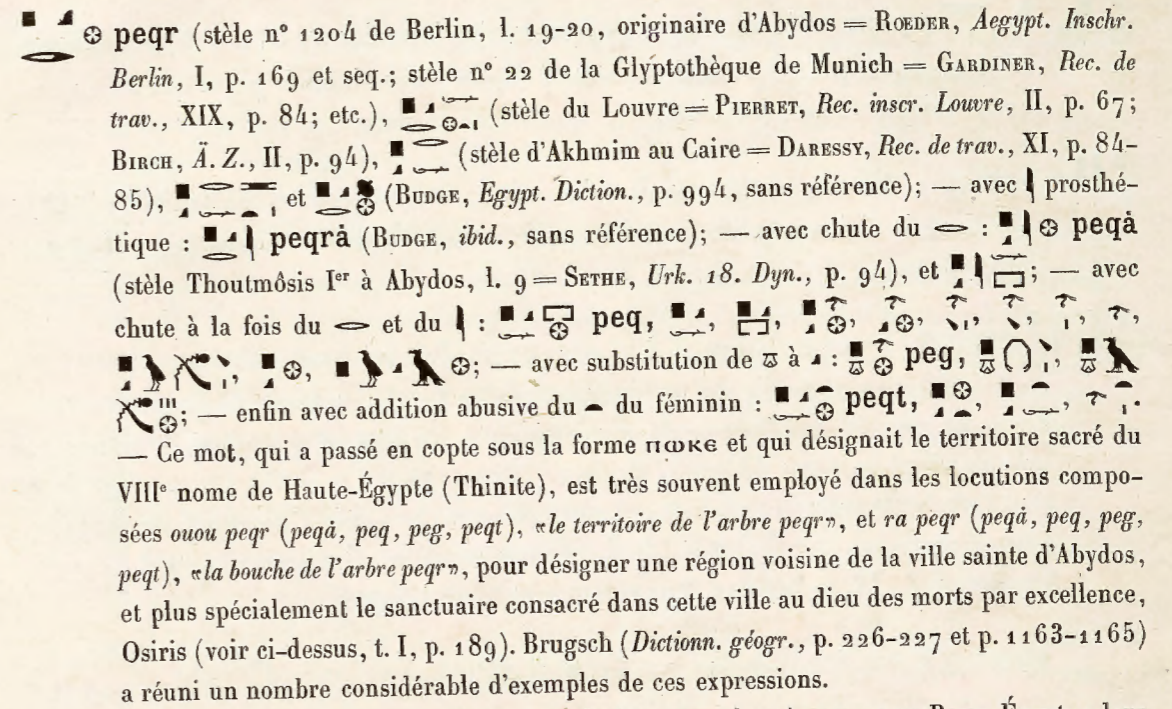 𓊪𓈎𓂋𓊖 peqr (stèle n° 1204 de Berlin, l. 19-20, originaire d'Abydos = ROEDER, Aegypt. Inschr.
Berlin, I, p. 169 et seq.; stèle n° 22 de la Glyptothèque de Munich = GARDINER, Rec. de
trav., XIX, p. 84; etc.), (stèle du Louvre = PIERRET, Rec. inscr. Louvre, II, p. 67;
BIRCH, Ä. Z., II, p. 94), (stèle d'Akhmim au Caire = DARESSY, Rec. de trav., XI, p. 84-
85), et (BUDGE, Egypt. Diction., p. 994, sans référence); — avec 𓇋 prosthé-
tique : 𓊪𓈎𓂋𓇋 peqrȧ (BUDGE, ibid., sans référence); — avec chute du 𓂋 : 𓊪𓈎𓇋𓊖 peqȧ
(stèle Thoutmôsis Ier à Abydos, l. 9 = SETHE, Urk. 18. Dyn., p. 94), et 𓊪𓈎𓇋𓉐; — avec
chute à la fois du 𓂋 et du 𓇋 : peq,
𓊪𓈎𓊖, ; — avec substitution de 𓎼 à 𓈎 : peg,
; — enfin avec addition abusive du 𓏏 du féminin : peqt,
— Ce mot, qui a passé en copte sous la forme ⲡⲱⲕⲉ et qui désignait le territoire sacré du
VIIIe nome de Haute-Égypte (Thinite), est très souvent employé dans les locutions compo-
sées ouou peqr (peqȧ, peq, peg, peqt), «le territoire de l'arbre peqr», et ra peqr (peqȧ, peq, peg,
peqt), «la bouche de l'arbre peqr», pour désigner une région voisine de la ville sainte d'Abydos,
et plus spécialement le sanctuaire consacré dans cette ville au dieu des morts par excellence,
Osiris (voir ci-dessus, t. I, p. 189). Brugsch (Dictionn. géogr., p. 226-227 et p. 1163-1165)
a réuni un nombre considérable d'exemples de ces expressions.